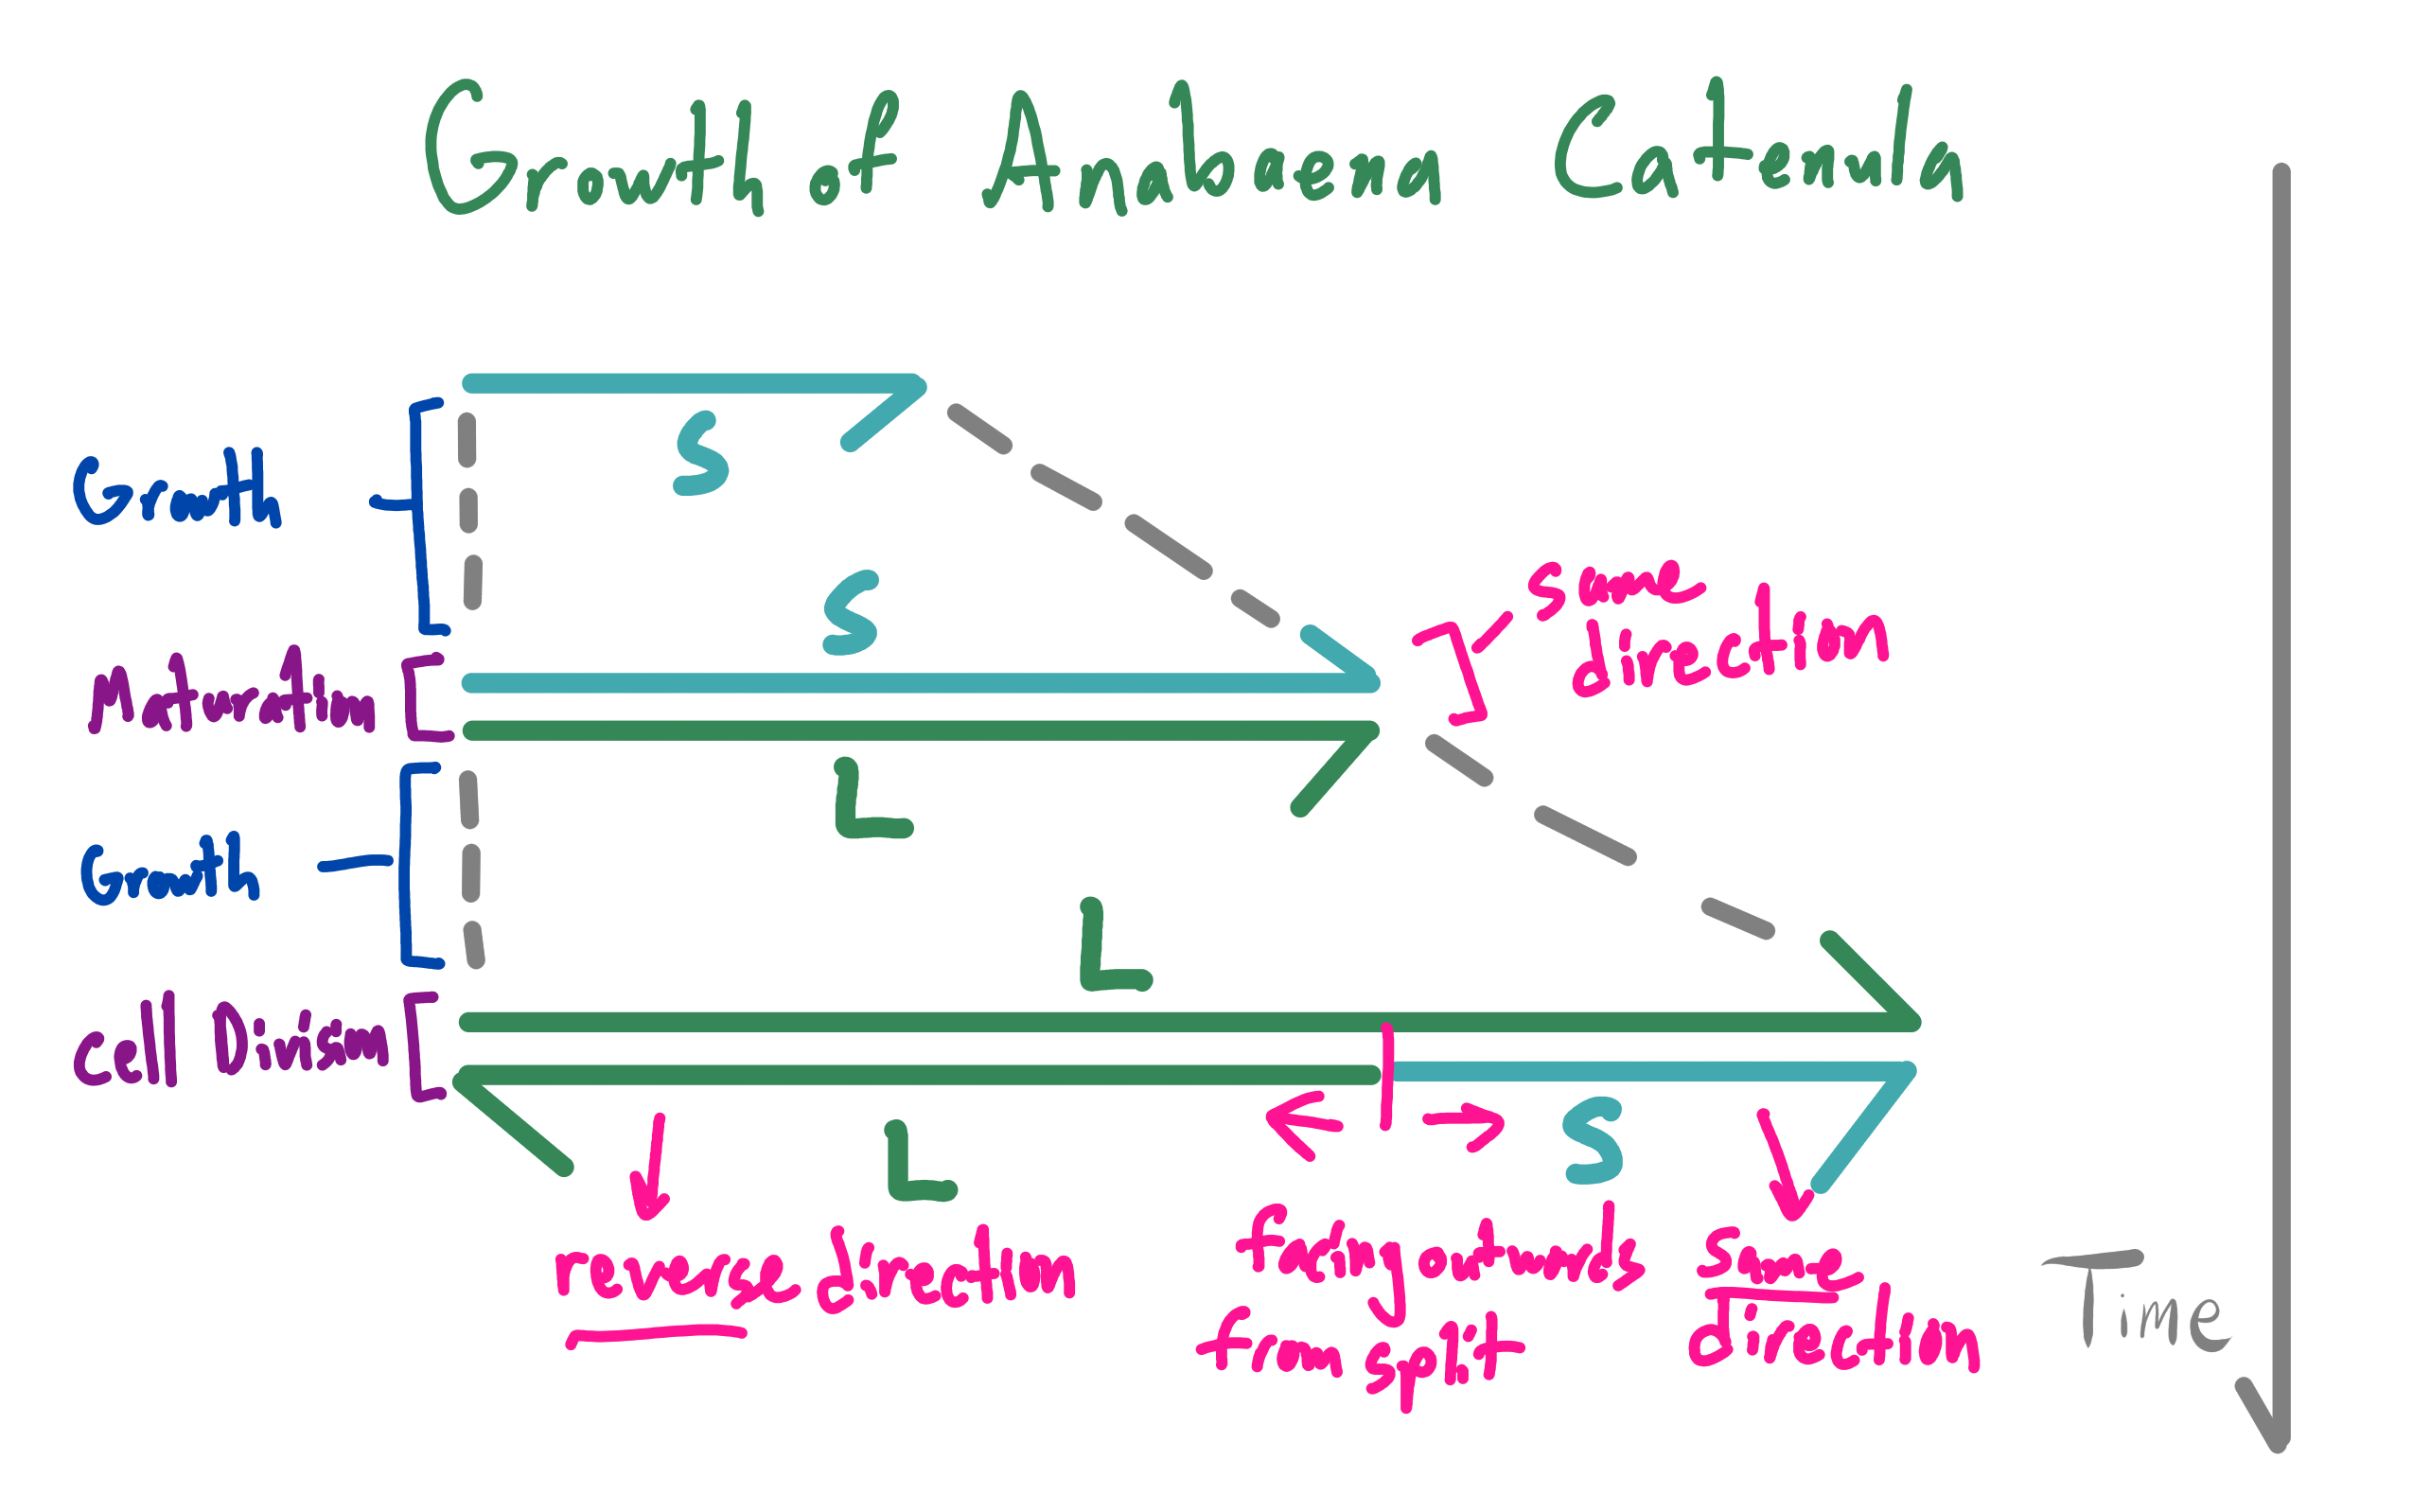 Growth of Anabaena Catenula
S
Growth
S
same
direction
Maturation
L
Growth
L
Cell Division
S
L
reverse direction
facing outwards
from split
same
direction
Time